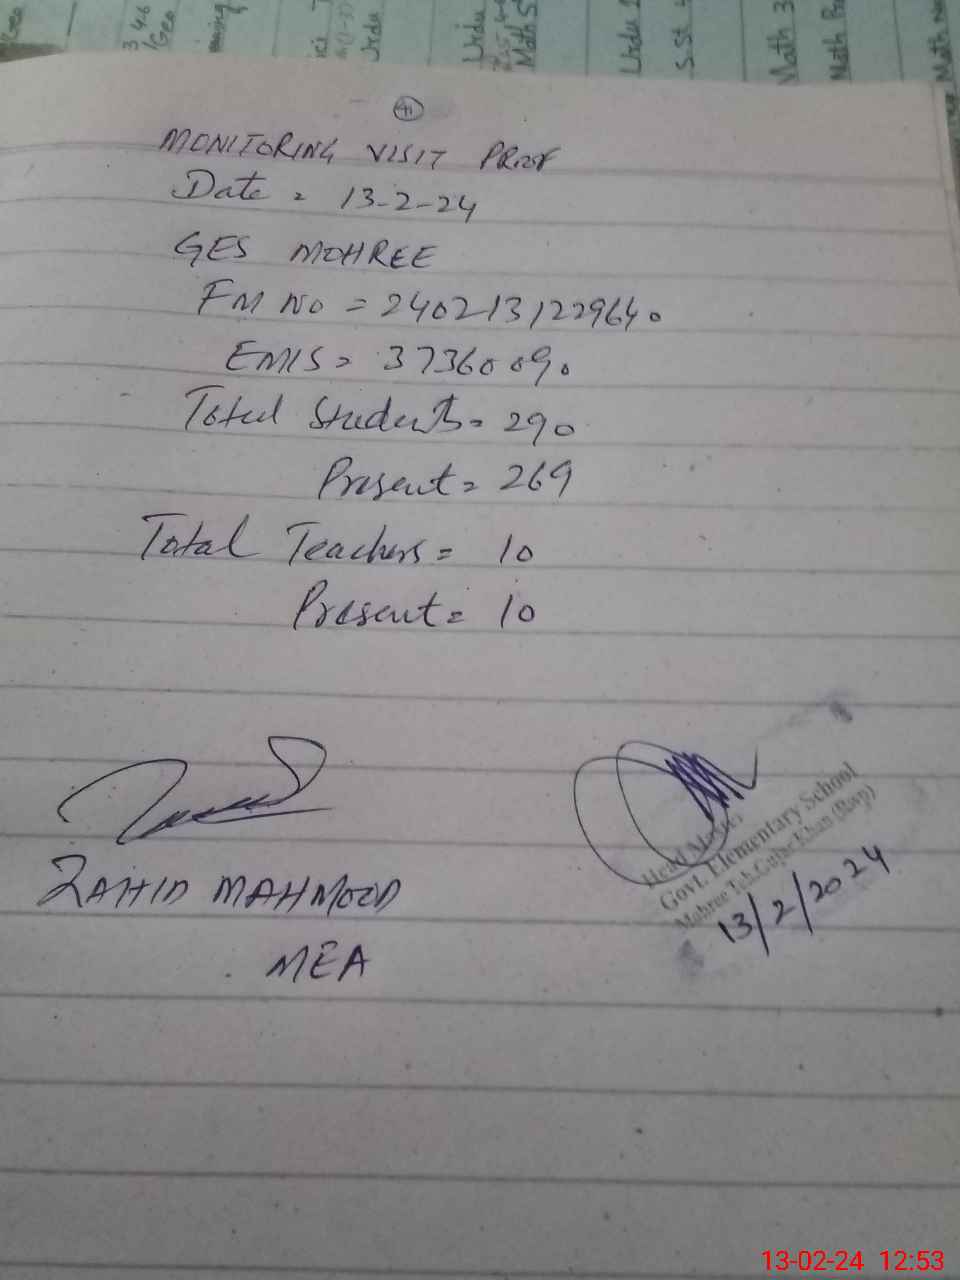 3 4.6
/Geo
Urdu
Urdu
Math 5
Urdu
S.St
Math 3
Math
Math
41
MONITORING VISIT PROOF
Date = 13-2-24
GES MOHREE
FM NO = 2402131229640
EMIS = 37360090
Total Students = 290
Present = 269
Total Teachers = 10
Present = 10
ZAHID MAHMOOD
MEA
Head Master
Govt. Elementary School
Mohree Teh. Gujar Khan (Rwp)
13/2/2024
13-02-24 12:53